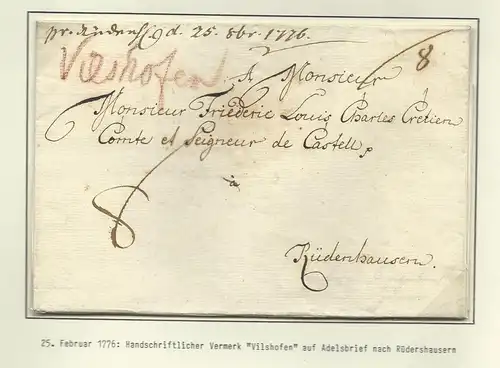 d. 25. 8br. 1776.
Vilshofen
8
A Monsieur
Monsieur Friederic Louis Charles Cretien
Comte et Seigneur de Castell
à
8
Rüdenhausen.
25. Februar 1776: Handschriftlicher Vermerk "Vilshofen" auf Adelsbrief nach Rüdershausern